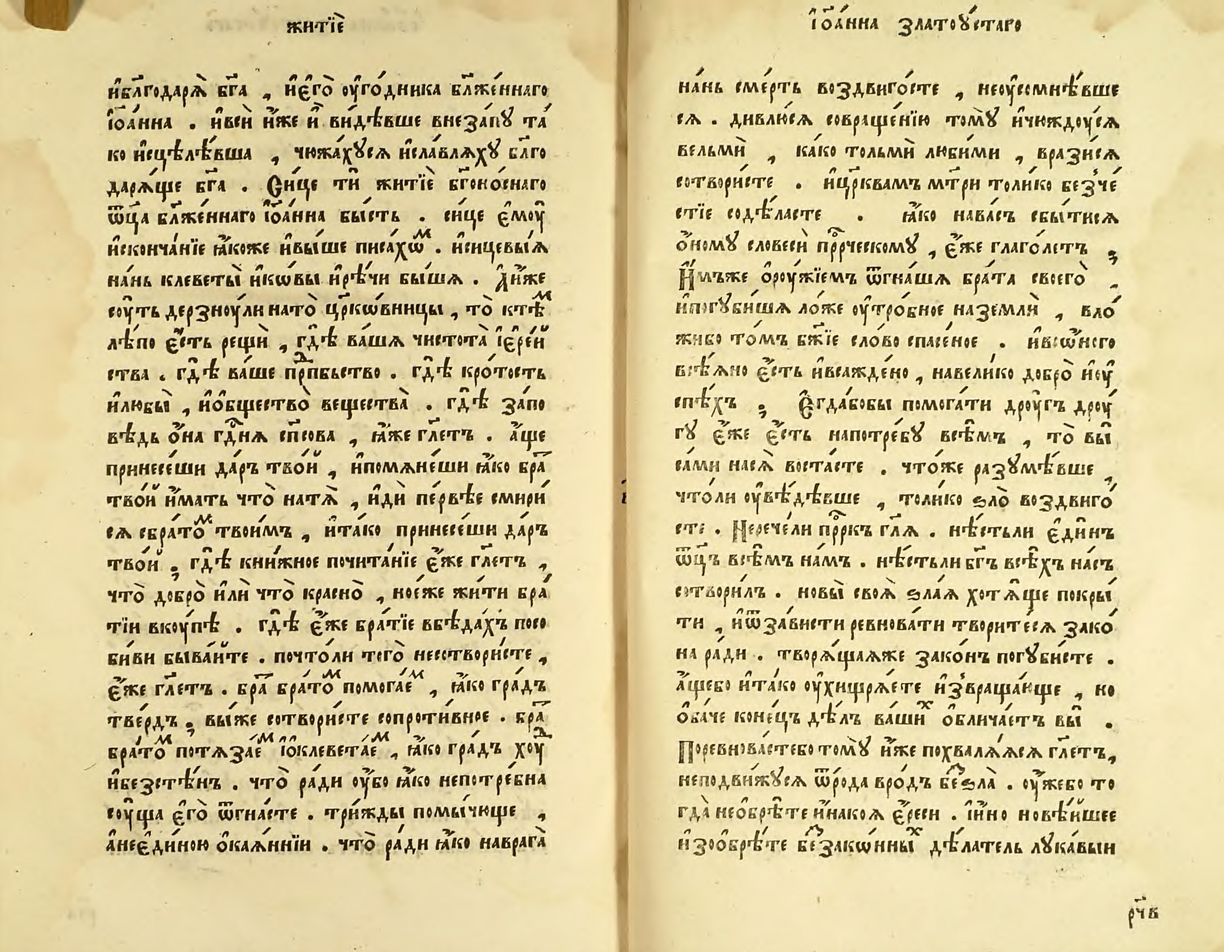 житїѐ
и҆бл҃годарѧ̀ бг҃а , и҆є҆го̀ оу҆го́дника бл҃же́ннаго
і҆ѡа́нна . и҆вси̂ и҆́же и҆̀ ви́дѣвше внеза́пꙋ та́
ко и҆сцѣлѣ́вша , чюжа́хꙋсѧ и҆сла́влѧхꙋ бл҃го
дарѧ́ще бг҃а . Си́це тѝ житїѐ бг҃оно́снаго
ѿц҃а бл҃же́ннаго і҆ѡа́нна бы́сть . си́це є҆мꙋ̀
и҆сконча́нїе ꙗ҆́коже и҆вы́ше писа́хѡⷨ . и҆сицевы́ѧ
на́нь клеветы̀ и҆ко́вы и҆рѣ́чи бы́шѧ . А҆́ и҆́же
сꙋ́ть дерзнꙋ́ли нато̀ цр҃ко́вницы , то̀ ктѣⷨ
лѣ́по є҆́сть рещѝ , гдѣ̀ ва́шѧ чистота̀ і҆єре́й
ства . гдѣ̀ ва́ше прⷣпбьство . гдѣ̀ кро́тость
и҆любы̀ , и҆ѻ҆́бщество̀ вещества̀ . гдѣ̀ за́по
вѣдь ѻ҆́на гдⷭ҇нѧ сп҃сова , ꙗ҆́же гл҃етъ . а҆́ще
принесе́ши да́ръ тво́й , и҆помѧ́неши ꙗ҆́ко бра́
тво́й и҆́мать что̀ натѧ̀ , и҆дѝ пе́рвѣе смири́
сѧ сбра́тоⷨ твои́мъ , и҆та́ко принесе́ши да́ръ
тво́й ; гдѣ̀ кни́жное почита́нїе є҆́же гл҃етъ ,
что̀ добро̀ и҆́ли что̀ красно̀ , но́еже жи́ти бра́
тїи вкꙋ́пѣ . гдѣ̀ є҆́же бра́тїе вбѣда́хъ посо
би́ви быва́йте . почто́ли того̀ несотвори́сте ,
є҆́же гл҃етъ . бра́ бра́тоⷨ помога́еⷨ , ꙗ҆́ко гра́дъ
тве́рдъ ; вы́же сотвори́сте сопроти́вное . бра́
бра́тоⷨ потѧза́еⷨ і҆ѻклевета́еⷨ , ꙗ҆́ко гра́дъ хꙋⷣ
и҆безстѣ́нъ . что̀ ра́ди оу҆́бо ꙗ҆́ко непотре́бна
сꙋ́ща є҆го̀ ѿгна́сте . три́жды помы́чюще ,
а҆неє҆ди́ною ѻ҆кая́нніи . что̀ ра́ди ꙗ҆́ко наврага̀
і҆ѡа́нна златоꙋ́стаго
на́нь сме́рть воздвиго́сте , неоу҆сомнѣ́вше
сѧ . дивлю́сѧ совраще́нїю томꙋ̀ и҆чюждꙋ́сѧ
вельмѝ , ка́ко тольмѝ люби́ми , врази́сѧ
сотвори́сте . и҆цр҃квамъ мт҃ри толи́ко безче́
стїе содѣ́ласте . ꙗ҆́ко нава́съ сбы́тисѧ
ѻ҆́номꙋ словесѝ прⷪ҇ро́ческомꙋ , є҆́же глаго́летъ ;
И҆мъже ѻ҆рꙋ́жїемъ ѿгна́шѧ бра́та своего̀
и҆погꙋби́шѧ ло́же оу҆тро́бное назе́мли , вло́
жибо то́мъ бж҃їе сло́во спасе́ное . и҆вѡ҆́нсго
всѣ́яно є҆́сть и҆всаждено̀ , навели́ко добро̀ и҆оу҆
спѣ́хъ ; Є҆гда́бобы помога́ти дрꙋ́гъ дрꙋ́
гꙋ є҆́же є҆́сть напотре́бꙋ всѣ́мъ , то̀ вы̀
са́ми насѧ̀ воста́сте . что́же разꙋмѣ́вше ,
что́ли оу҆вѣ́дѣвше , толи́ко ѕло̀ воздвиго́
сте . Нерече́ли прⷪ҇ркъ гл҃ѧ . нѣ́стьли є҆ди́нъ
ѿц҃ъ всѣ́мъ на́мъ . нѣ́стьли бг҃ъ всѣ́хъ на́съ
сотвори́лъ . новы̀ своѧ̀ ѕла́ѧ хотѧ́ще покры́
ти , и҆ѿза́висти ревнова́ти творите́сѧ зако́
на ра́ди . творѧ́щаѧже зако́нъ погꙋби́сте .
а҆́щебо и҆та́ко оу҆хищрѧ́ете и҆звраща́юще , но
ѻ҆ба́че коне́цъ дѣ́лъ ва́шиⷯ ѻ҆блича́етъ вы̀ .
Поревнова́стебо томꙋ̀ и҆́же похвалѧ́ѧсѧ гл҃етъ,
неподви́жꙋсѧ ѿро́да вро́дъ беⷥѕла̀ . оу҆́жебо то
гда̀ неѻ҆брѣ́те и҆нако́ѧ є҆́реси . і҆и҆́но новѣ́йшее
и҆зоѻбрѣ́те беⷥзако́нныⷯ дѣ́латель лꙋка́выи
рч҃в